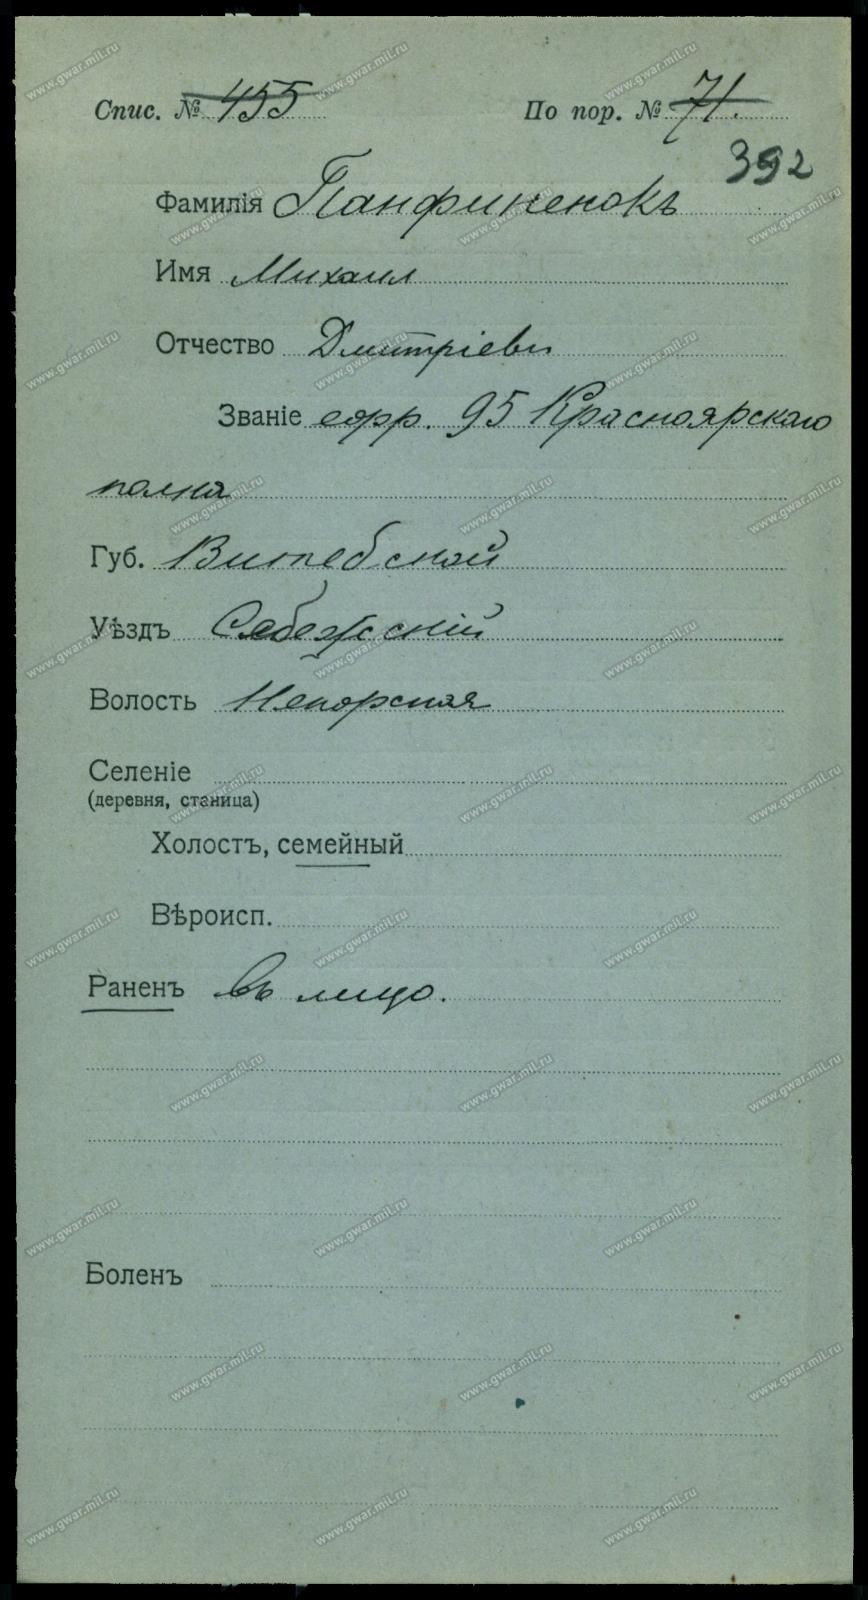 Спис. № 455 По пор. № 71.
392
Фамилія Панфиненокъ
Имя Михаил
Отчество Дмитріеви
Званіе ефр. 95 Красноярскаго
полка
Губ. Витебской
Уѣздъ Себежскій
Волость Непорская
Селеніе
(деревня, станица)
Холостъ, семейный
Вѣроисп.
Раненъ въ лицо.
Боленъ
www.gwar.mil.ru